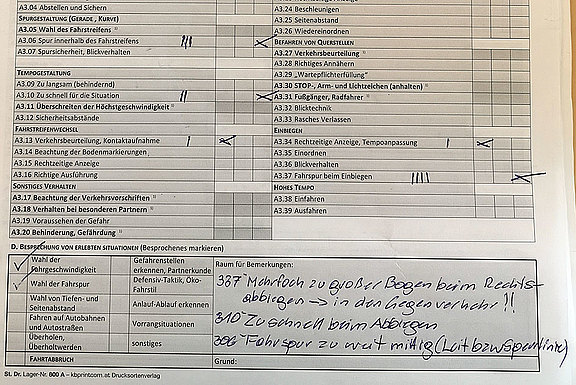 A3.04 Abstellen und Sichern
SPURGESTALTUNG (GERADE, KURVE)
A3.05 Wahl des Fahrstreifens
A3.06 Spur innerhalb des Fahrstreifens
A3.07 Spursicherheit, Blickverhalten
TEMPOGESTALTUNG
A3.09 Zu langsam (behindernd)
A3.10 Zu schnell für die Situation
A3.11 Überschreiten der Höchstgeschwindigkeit
A3.12 Sicherheitsabstände
FAHRSTREIFENWECHSEL
A3.13 Verkehrsbeurteilung, Kontaktaufnahme
A3.14 Beachtung der Bodenmarkierungen
A3.15 Rechtzeitige Anzeige
A3.16 Richtige Ausführung
SONSTIGES VERHALTEN
A3.17 Beachtung der Verkehrsvorschriften
A3.18 Verhalten bei besonderen Partnern
A3.19 Voraussehen der Gefahr
A3.20 Behinderung, Gefährdung
A3.24 Beschleunigen
A3.25 Seitenabstand
A3.26 Wiedereinordnen
BEFAHREN VON QUERSTELLEN
A3.27 Verkehrsbeurteilung
A3.28 Richtiges Annähern
A3.29 „Wartepflichterfüllung"
A3.30 STOP-, Arm- und Lichtzeichen (anhalten)
A3.31 Fußgänger, Radfahrer
A3.32 Blicktechnik
A3.33 Rasches Verlassen
EINBIEGEN
A3.34 Rechtzeitige Anzeige, Tempoanpassung
A3.35 Einordnen
A3.36 Blickverhalten
A3.37 Fahrspur beim Einbiegen
HOHES TEMPO
A3.38 Einfahren
A3.39 Ausfahren
D. BESPRECHUNG VON ERLEBTEN SITUATIONEN (Besprochenes markieren)
Wahl der
Fahrgeschwindigkeit
Wahl der Fahrspur
Wahl von Tiefen- und
Seitenabstand
Fahren auf Autobahnen
und Autostraßen
Überholen,
Überholtwerden
FAHRTABBRUCH
Gefahrenstellen
erkennen, Partnerkunde
Defensiv-Taktik, Öko-
Fahrstil
Anlauf-Ablauf erkennen
Vorrangsituationen
sonstiges
Raum für Bemerkungen:
337 Mehrfach zu großer Bogen beim Rechts-
abbiegen → in den Gegenverkehr !!
310 Zu schnell beim Abbiegen
306 Fahrspur zu weit mittig (Leit bzw Sperrlinie)
Grund:
St. Dr. Lager-Nr. 800 A – kbprintcom.at Drucksortenverlag